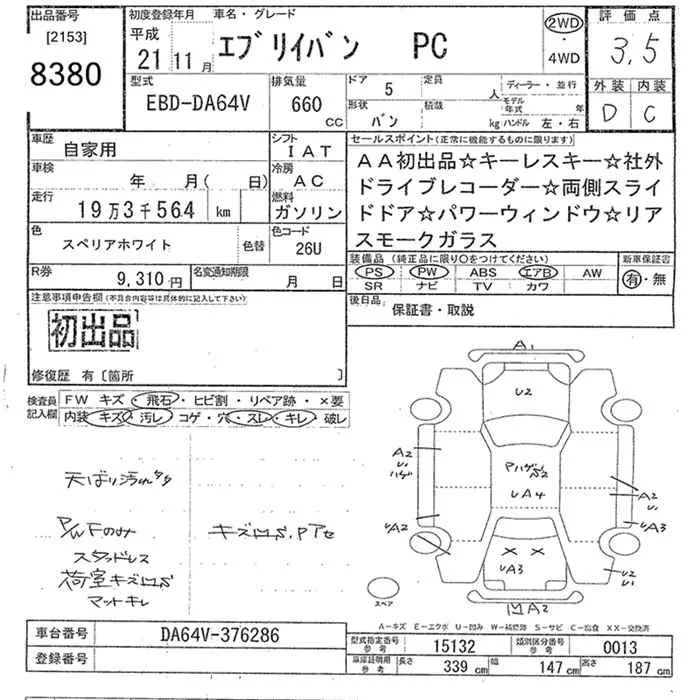 出品番号
[2153]
8380
初度登録年月
平成
21 11 月
車名・グレード
エブリイバン PC
2WD
・
4WD
評価点
3,5
外装 内装
D C
型式
EBD-DA64V
排気量
660
CC
ドア 5
定員 人
形状 バン
積載 kg
ディーラー・並行
モデル年式 年
ハンドル 左・右
車歴
自家用
シフト
IAT
車検
年 月( 日)
冷房
AC
走行
19万3千564 km
燃料
ガソリン
色
スペリアホワイト
色替
色コード
26U
R券
9,310円
名変通知期限
月 日
セールスポイント(正常に機能するものに限ります)
AA初出品☆キーレスキー☆社外
ドライブレコーダー☆両側スライ
ドドア☆パワーウィンドウ☆リア
スモークガラス
装備品(純正品に限り○をつけてください)
PS PW ABS エアB AW
SR ナビ TV カワ
新車保証書
有・無
後日品
保証書・取説
注意事項申告欄(不具合内容等は具体的に記入して下さい)
初出品
修復歴 有〔箇所 〕
検査員記入欄
FW キズ・飛石・ヒビ割・リペア跡・×要
内装 キズ・汚レ・コゲ・穴・スレ・キレ・破レ
天ばり汚れ
P/WFのみ
スタッドレス
荷室キズ
マットキレ
A1
U2
A2
U1
ハゲ
UA4
A2
U1
UA2
UA3
× ×
UA3
U2
U1
A2
スペア
A-キズ E-エクボ U-凹み W-補修跡 S-サビ C-腐食 XX-交換済
車台番号
DA64V-376286
登録番号
型式指定番号
参考
15132
類別区分番号
参考
0013
車庫証明用
参考
長さ 339 cm
幅 147 cm
高さ 187 cm